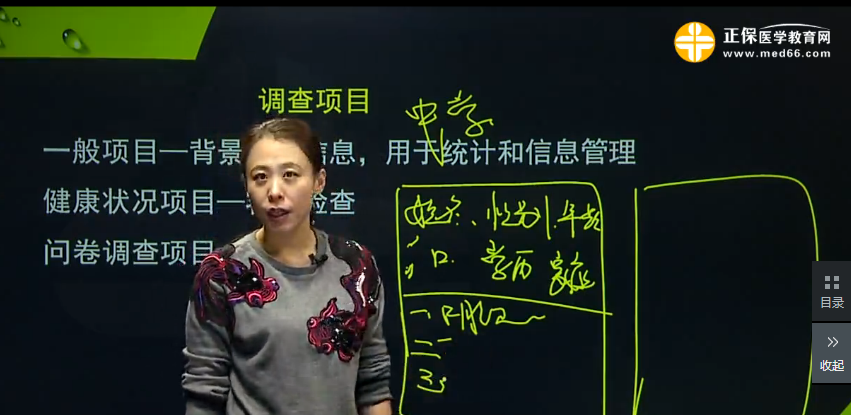 正保医学教育网
www.med66.com
调查项目
中学
一般项目—背景 信息，用于统计和信息管理
健康状况项目— 检查
问卷调查项目
姓名、性别、年龄
口 学历
一、
二、
三、
目录
收起